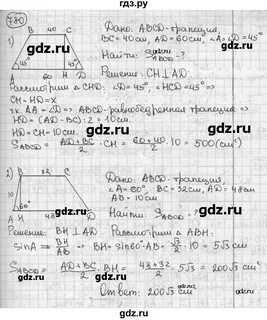 780
1) B 40 C
A 60 H D
Дано: ABCD-трапеция,
BC=40см, AD=60см, ∠A=∠D=45°
Найти: SABCD-?
Решение: CH⊥AD.
Рассмотрим △CHD: ∠D=45°, ∠HCD=45° ⇒
CH=HD=x
т.к. ∠A=∠D ⇒ ABCD-равнобедренная трапеция ⇒
HD=(AD-BC):2=10см.
HD=CH=10см.
SABCD = AD+BC/2 · CH = 60+40/2 · 10 = 500(см²)
2) B 32 C
A H 48 D
Дано: ABCD-трапеция,
∠A=60°, BC=32см, AD=48см
AB=10см
Найти: SABCD-?
Решение: BH⊥AD Рассмотрим △ABH:
sinA = BH/AB ⇒ BH=sin60°·AB = √3/2 · 10 = 5√3 см
SABCD = AD+BC/2 · BH = 48+32/2 · 5√3 = 200√3 см²
Ответ: 200√3 см²
gdz.ru gdz.ru gdz.ru